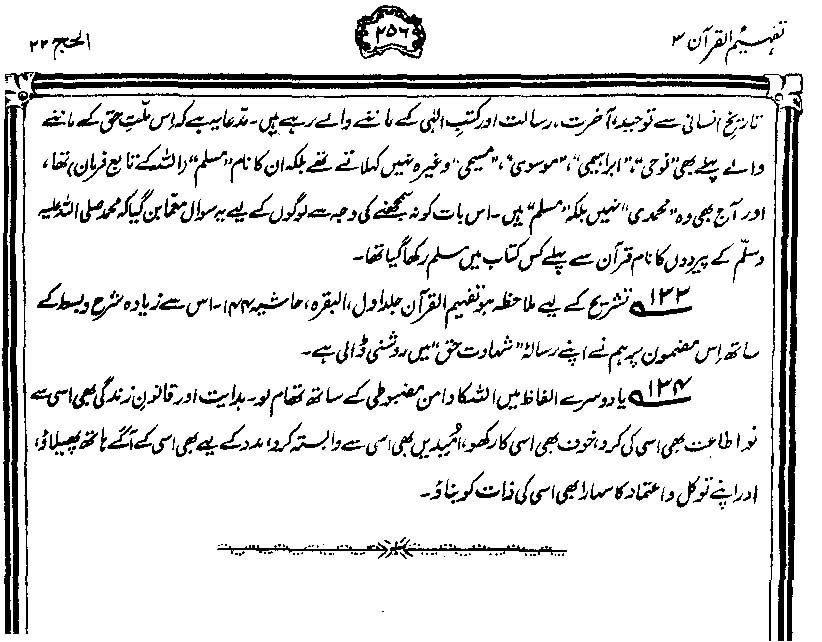 تفہیم القرآن ۳
۲۵۶
الحج ۲۲
تاریخِ انسانی سے توحید، آخرت، رسالت اور کتبِ الٰہی کے ماننے والے رہے ہیں۔ مدعا یہ ہے کہ اِس ملّتِ حق کے ماننے
والے پہلے بھی ”نوحی“، ”ابراہیمی“، ”موسوی“، ”مسیحی“ وغیرہ نہیں کہلاتے تھے بلکہ ان کا نام ”مسلم“ (اللہ کے تابع فرمان) تھا،
اور آج بھی وہ ”محمدی“ نہیں بلکہ ”مسلم“ ہیں۔ اس بات کو نہ سمجھنے کی وجہ سے لوگوں کے لیے یہ سوال معما بن گیا کہ محمد صلی اللہ علیہ
وسلّم کے پیرووں کا نام قرآن سے پہلے کس کتاب میں مسلم رکھا گیا تھا۔
۱۳۳ تشریح کے لیے ملاحظہ ہو تفہیم القرآن جلد اول، البقرہ، حاشیہ ۱۴۴۔ اس سے زیادہ شرح و بسط کے
ساتھ اِس مضمون پر ہم نے اپنے رسالۂ ”شہادت حق“ میں روشنی ڈالی ہے۔
۱۳۴ یا دوسرے الفاظ میں اللہ کا دامن مضبوطی کے ساتھ تھام لو۔ ہدایت اور قانونِ زندگی بھی اسی سے
لو، اطاعت بھی اسی کی کرو، خوف بھی اسی کا رکھو، اُمیدیں بھی اسی سے وابستہ کرو، مدد کے لیے بھی اسی کے آگے ہاتھ پھیلاؤ،
اور اپنے توکل و اعتماد کا سہارا بھی اسی کی ذات کو بناؤ۔